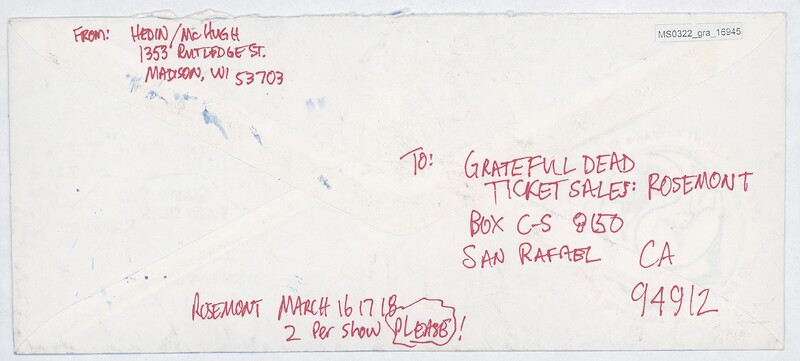 MS0322_gra_16945
FROM: HEDIN/McHUGH
1353 RUTLEDGE ST.
MADISON, WI 53703
TO: GRATEFULL DEAD
TICKET SALES: ROSEMONT
BOX C-S 8150
SAN RAFAEL CA
94912
ROSEMONT MARCH 16 17 18
2 Per Show PLEASE!